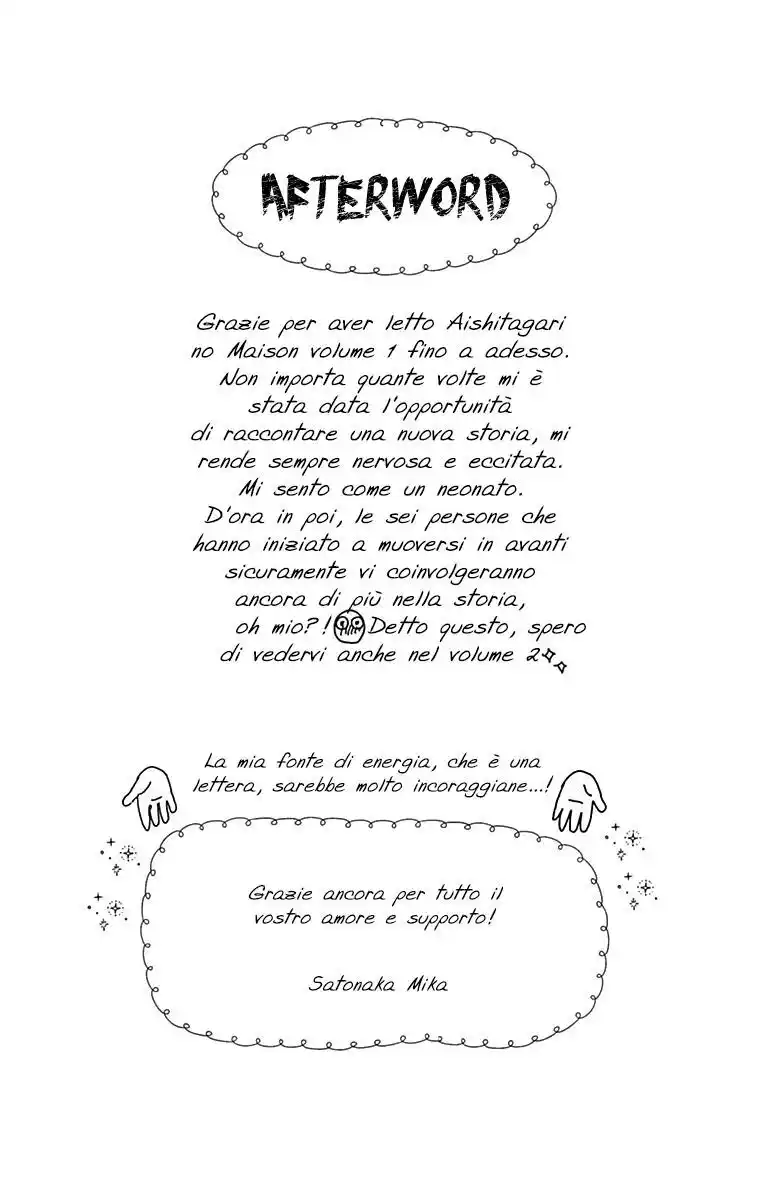 AFTERWORD
Grazie per aver letto Aishitagari
no Maison volume 1 fino a adesso.
Non importa quante volte mi è
stata data l'opportunità
di raccontare una nuova storia, mi
rende sempre nervosa e eccitata.
Mi sento come un neonato.
D'ora in poi, le sei persone che
hanno iniziato a muoversi in avanti
sicuramente vi coinvolgeranno
ancora di più nella storia,
oh mio?! Detto questo, spero
di vedervi anche nel volume 2
La mia fonte di energia, che è una
lettera, sarebbe molto incoraggiane...!
Grazie ancora per tutto il
vostro amore e supporto!
Satonaka Mika